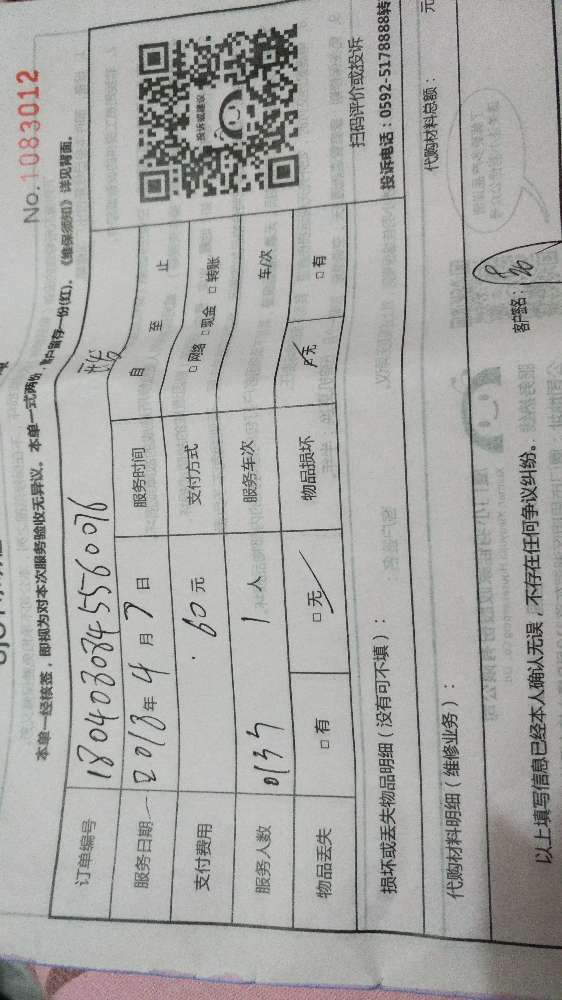 No.1083012
本单一经核签，即视为对本次服务验收无异议。本单一式两份，客户留存一份(红)，《维保须知》详见背面。
订单编号 1804030845560076
服务日期 2018年4月7日 服务时间 自 至 止
支付费用 60元 支付方式 □网络 □现金 □转账
服务人数 1人 服务车次 车/次
物品丢失 □有 □无 物品损坏 □无 □有
投诉或建议
扫码评价或投诉
投诉电话：0592-5178888转
损坏或丢失物品明细（没有可不填）：
代购材料明细（维修业务）： 代购材料总额： 元
以上填写信息已经本人确认无误，不存在任何争议纠纷。 客户签名：